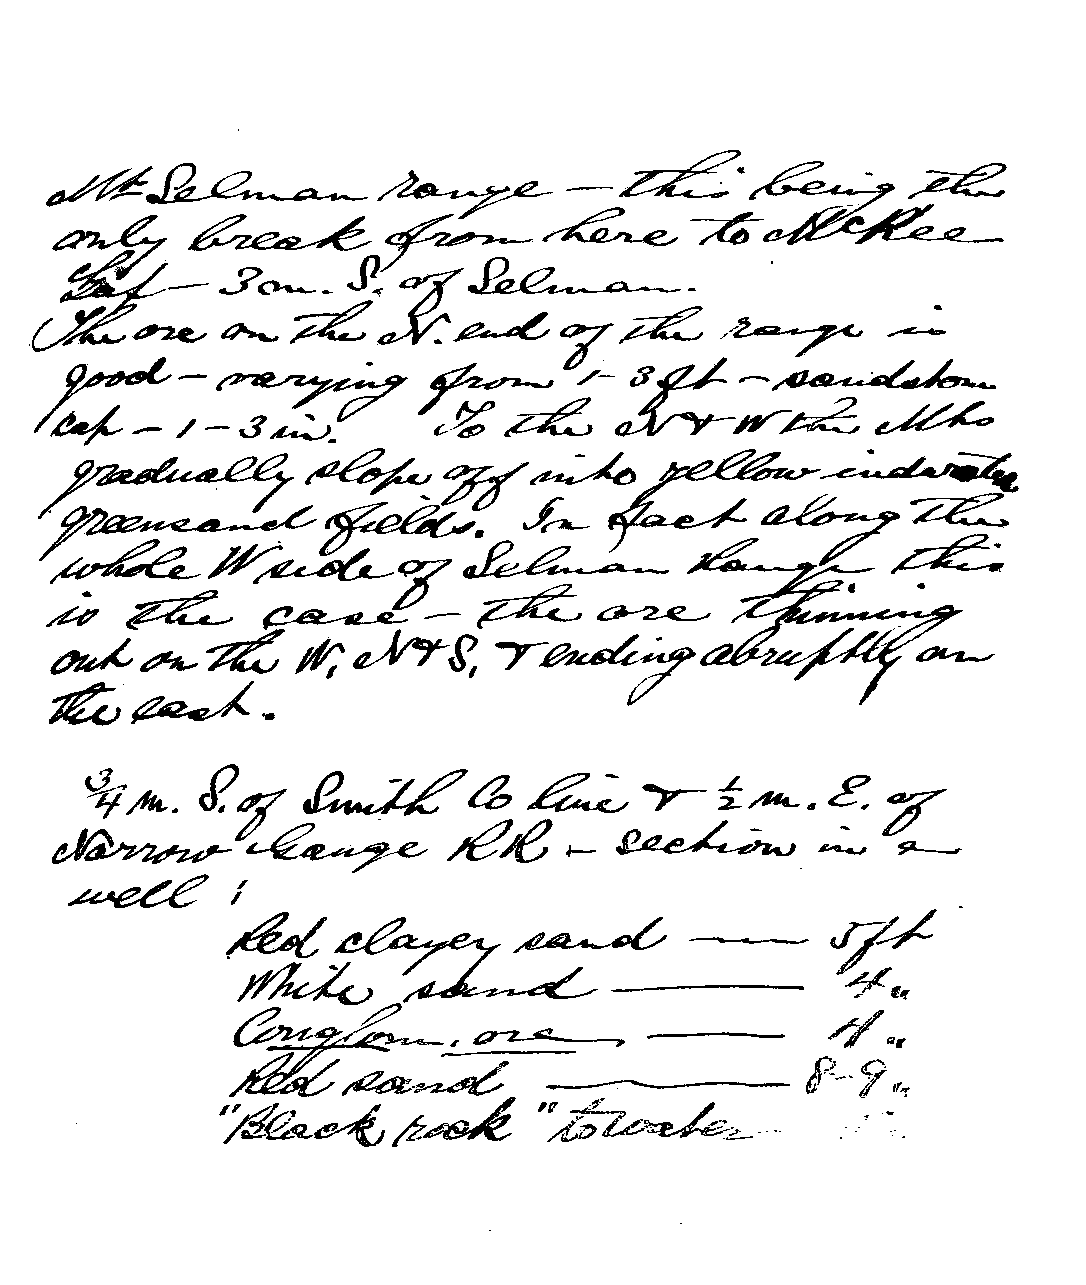 Mt Selman range — this being the
only break from here to McKee
Gap — 3 m. S. of Selman.
The ore on the N. end of the range is
good — varying from 1-3 ft — sandstone
cap — 1 - 3 in. To the N & W the Mts
gradually slope off into yellow indurated
greensand fields. In fact along the
whole W side of Selman Range this
is the case — the ore thinning
out on the W, N & S, & ending abruptly on
the east.
3/4 m. S. of Smith Co line & 1/2 m. E. of
Narrow Gauge RR — section in a
well :
Red clayey sand —— 5 ft
White sand —— 4 "
Conglom. ore —— 4 "
Red sand —— 8-9 "
"Black rock" to water